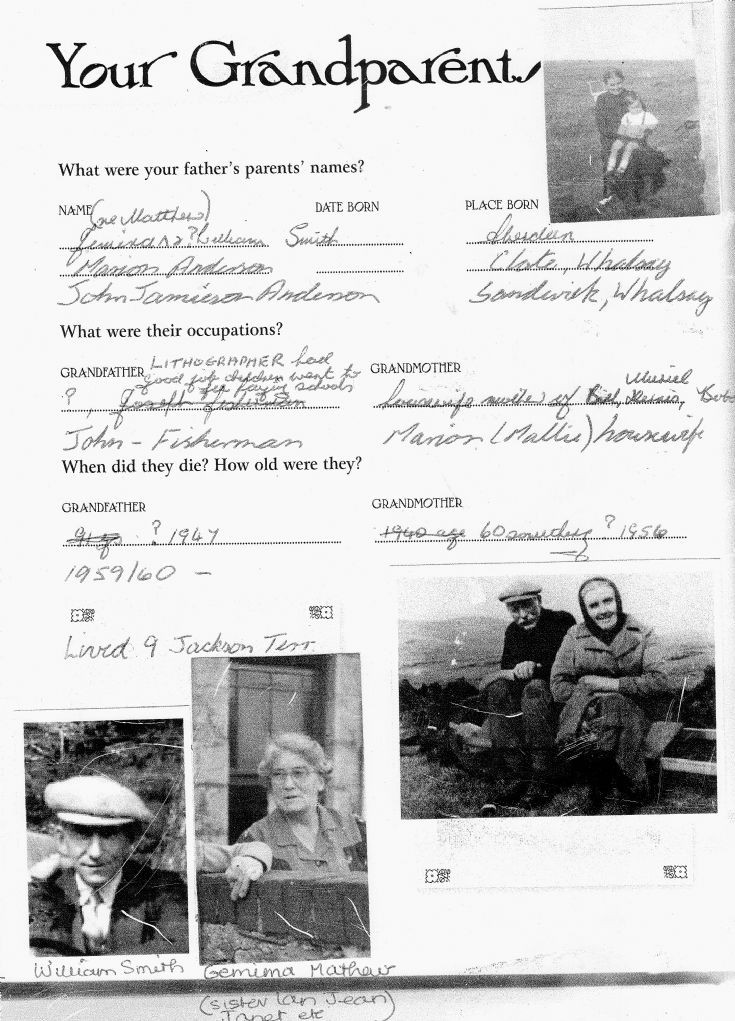 Your Grandparents
What were your father's parents' names?
NAME DATE BORN PLACE BORN
(ne Matthew)
William Smith Aberdeen
Marion Anderson Clate, Whalsay
John Jamieson Anderson Sandwick, Whalsay
What were their occupations?
GRANDFATHER GRANDMOTHER
LITHOGRAPHER had
good job children went to
fee paying schools
? , housewife mother of Bill, Muriel
John - Fisherman Marion (Mallie) housewife
When did they die? How old were they?
GRANDFATHER GRANDMOTHER
? 1947 1940 age 60 something ? 1956
1959/60 -
Lived 9 Jackson Terr.
William Smith Gemima Mathew
(sister Ian Jean)
Janet etc